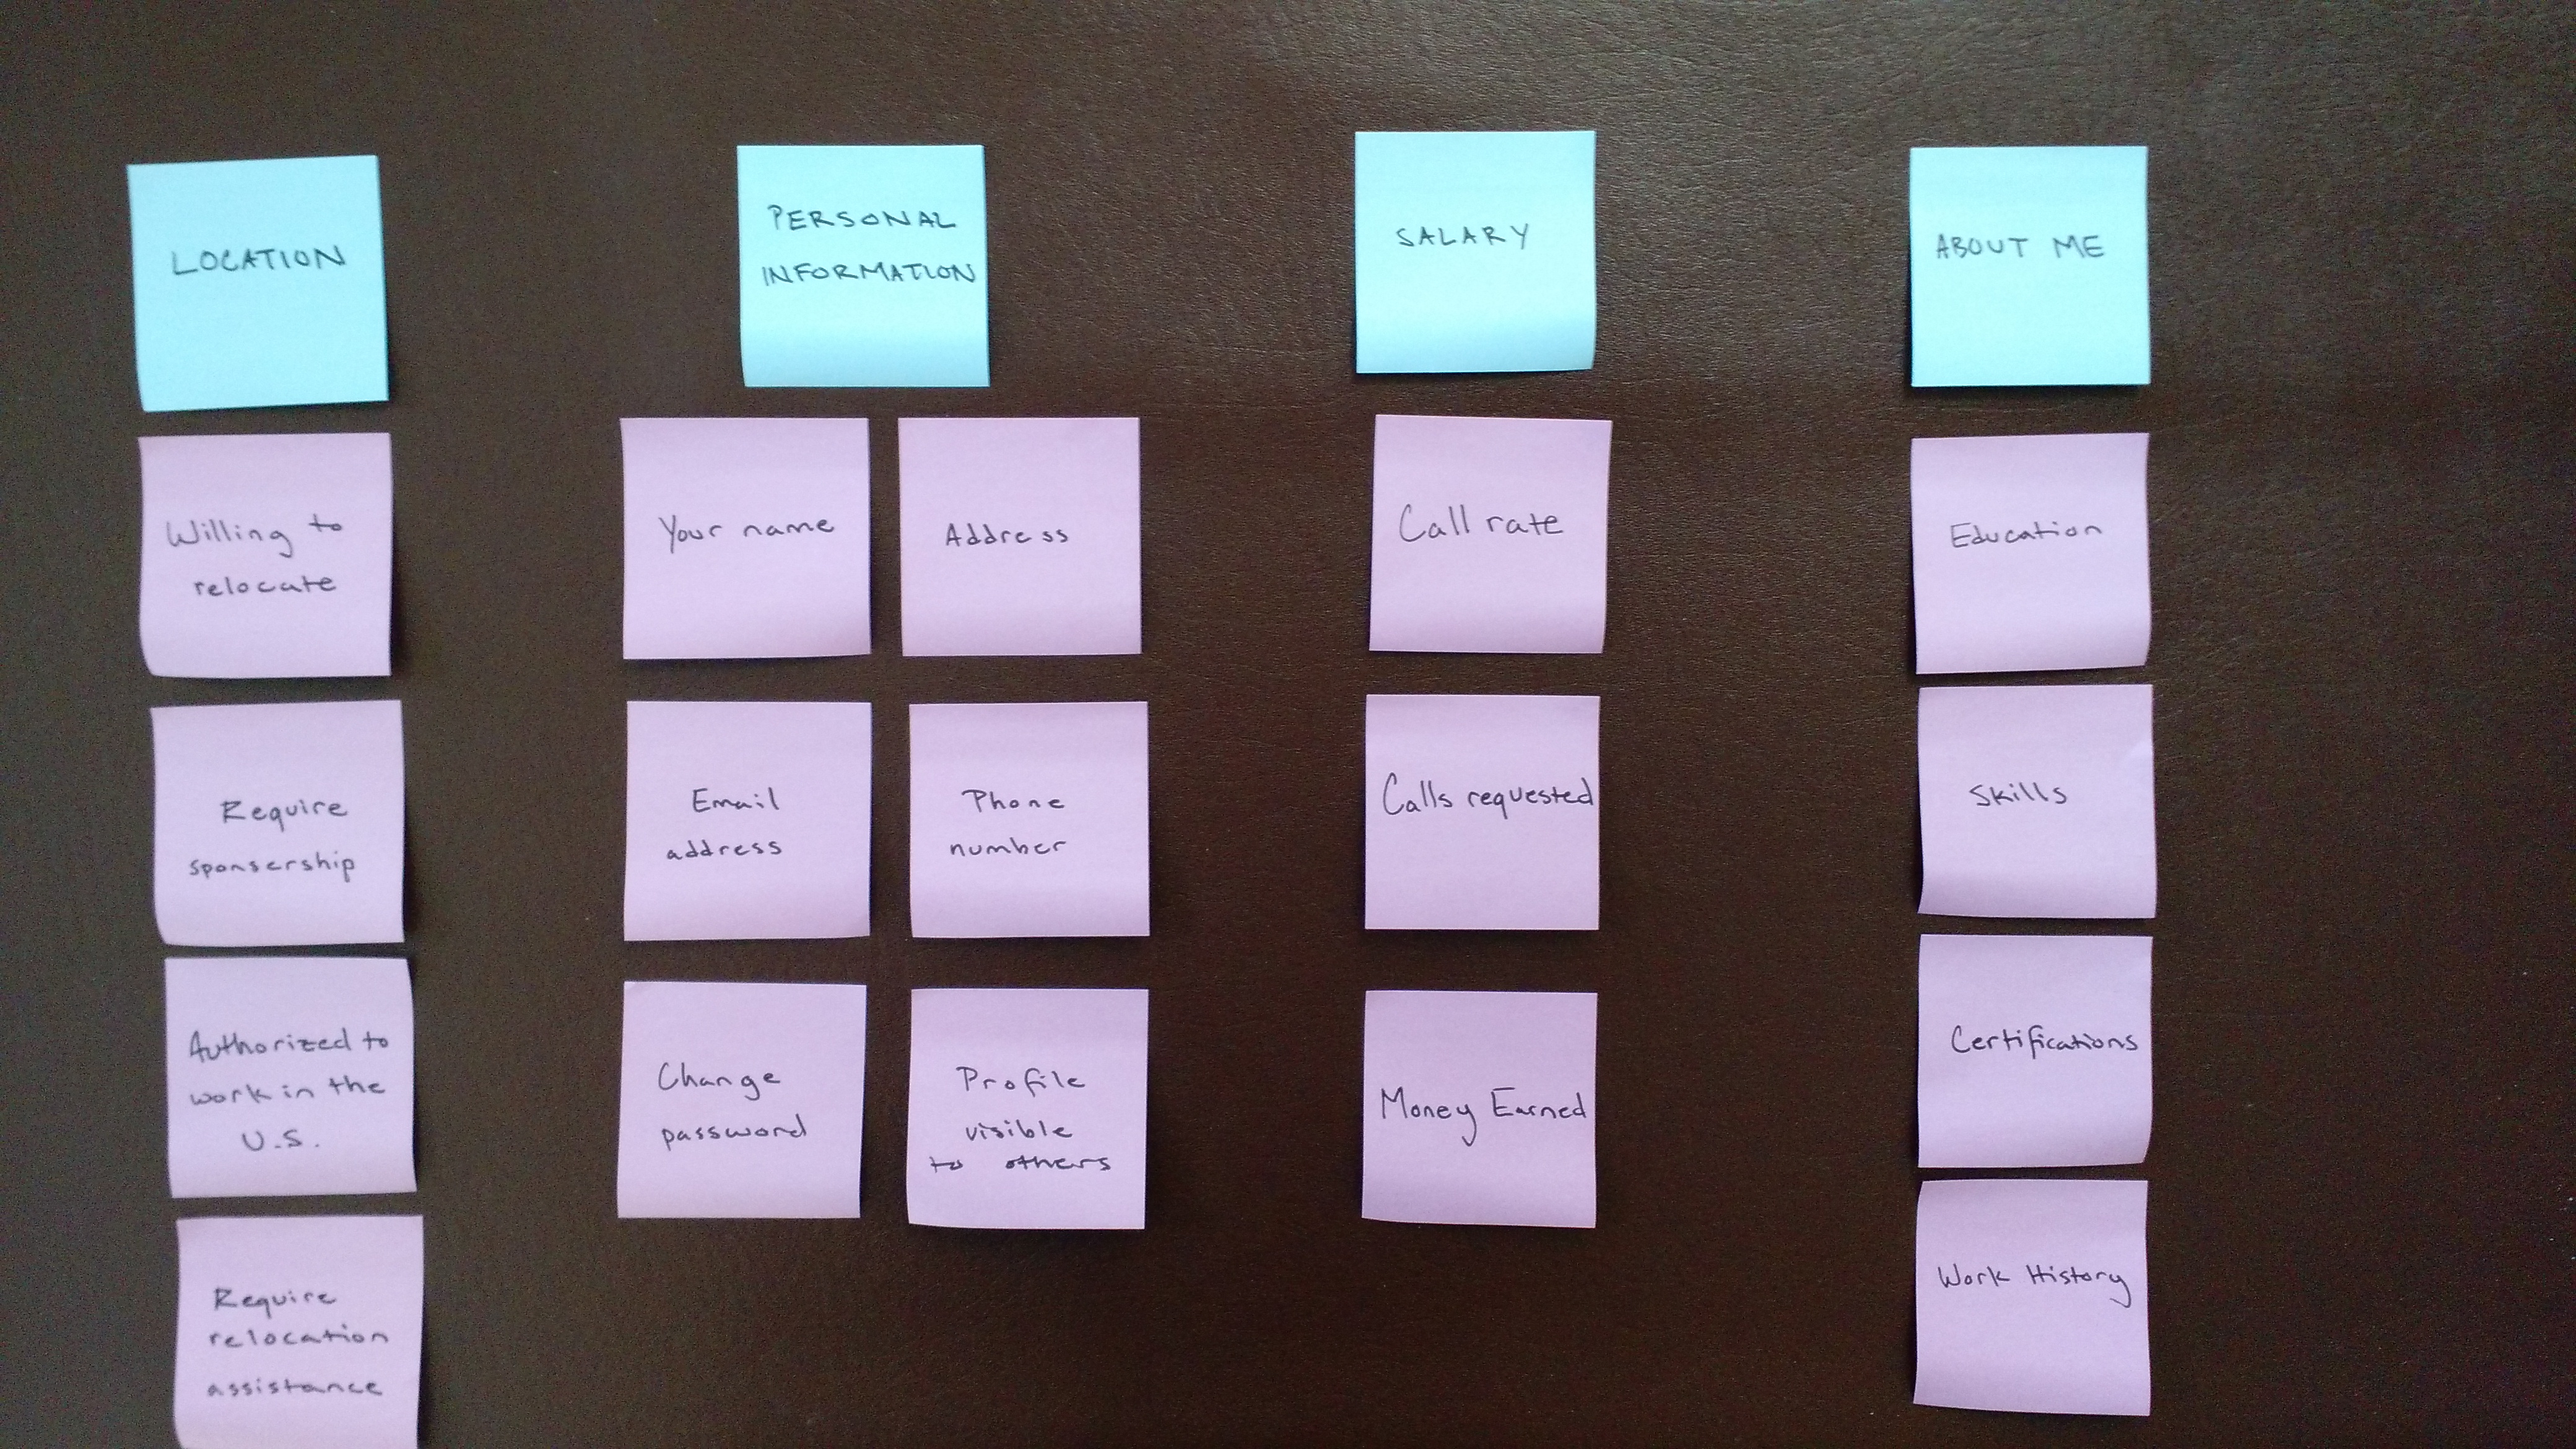 LOCATION
Willing to
relocate
Require
sponsership
Authorized to
work in the
U.S.
Require
relocation
assistance
PERSONAL
INFORMATION
Your name
Address
Email
address
Phone
number
Change
password
Profile
visible
to others
SALARY
Call rate
Calls requested
Money Earned
ABOUT ME
Education
Skills
Certifications
Work History